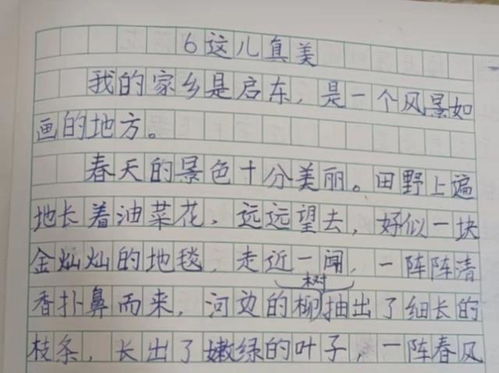 6这儿真美
我的家乡是启东，是一个风景如
画的地方。
春天的景色十分美丽。田野上遍
地长着油菜花，远远望去，好似一块
金灿灿的地毯，走近一闻，一阵阵清
香扑鼻而来，河边的柳树抽出了细长的
枝条，长出了嫩绿的叶子，一阵春风